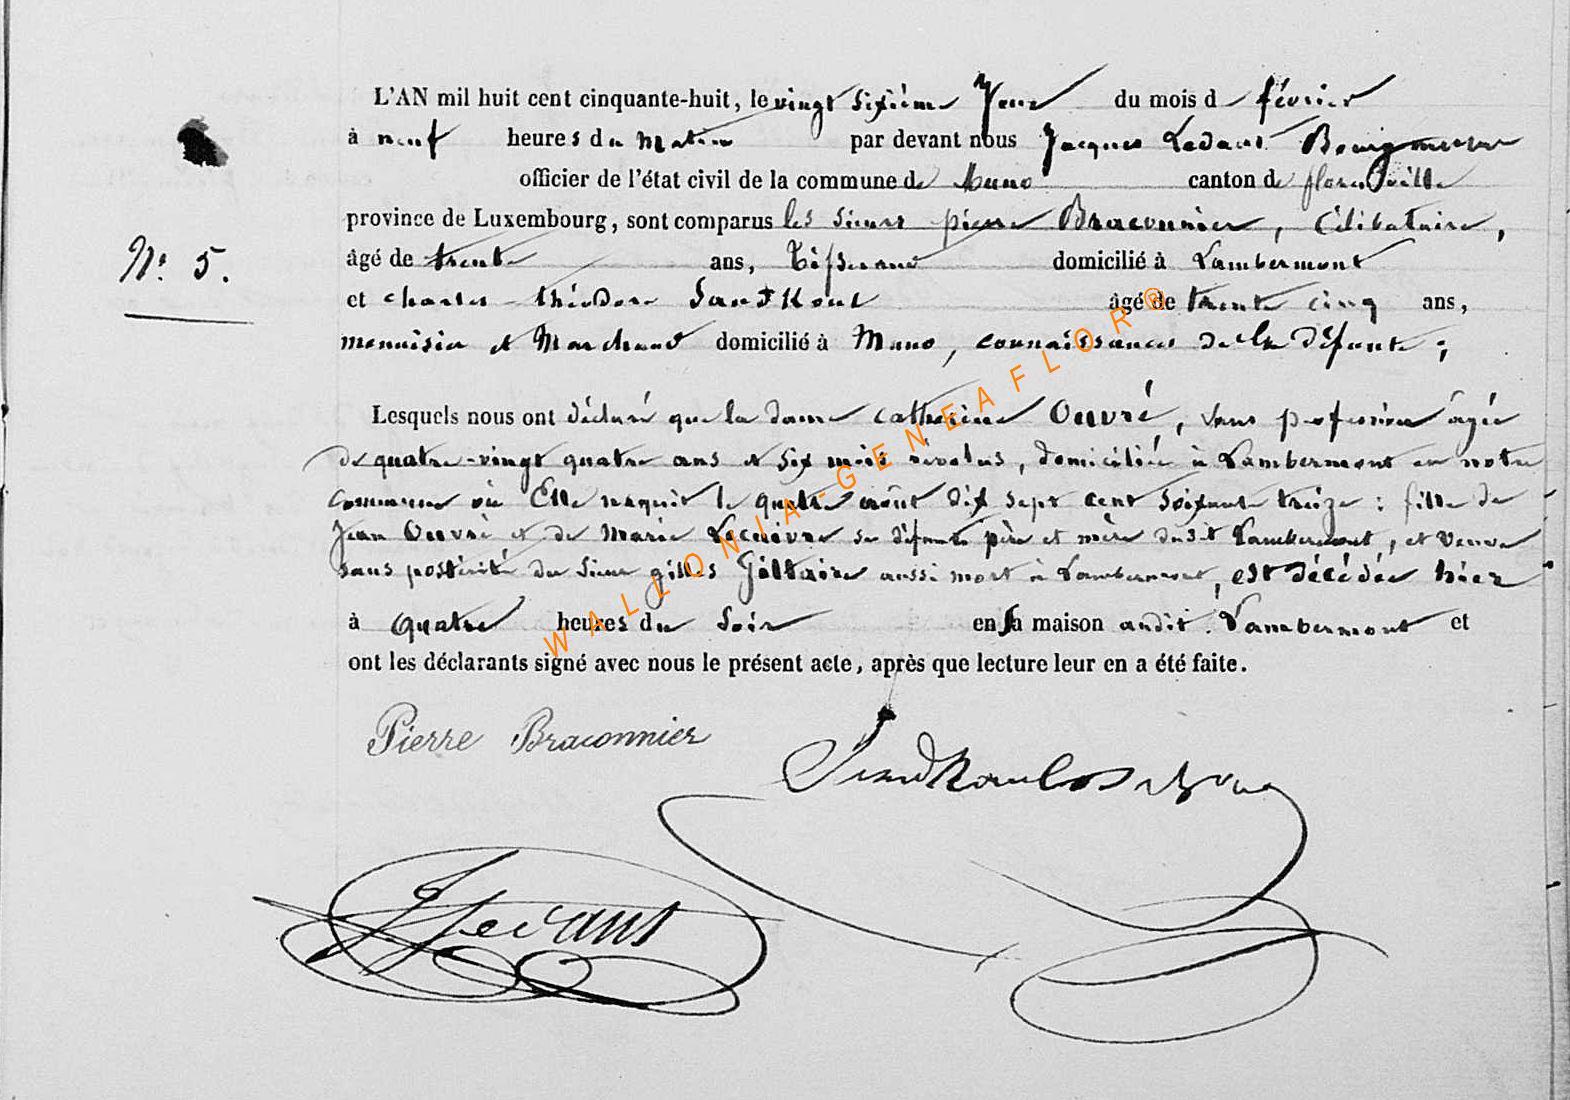 L'AN mil huit cent cinquante-huit, le vingt sixième Jour du mois de février
à neuf heures du Matin par devant nous Jacques Ledant Bourgmestre
officier de l'état civil de la commune de Muno canton de florenville
province de Luxembourg, sont comparus les sieurs pierre Braconnier, Célibataire,
N° 5.
âgé de trente ans, Tisserand domicilié à Lambermont
et charles théodore âgé de trente cinq ans,
menuisier et Marchand domicilié à Muno, connaissances de la défunte;
Lesquels nous ont déclaré que la dame catherine Ouvré, sans profession âgée
de quatre-vingt quatre ans et six mois révolus, domiciliée à Lambermont en notre
commune où Elle naquit le quatre août dix sept cent soixante treize: fille de
Jean Ouvré et de Marie ses défunts père et mère dudit Lambermont, et veuve
sans postérité du Sieur gilles Giltaire aussi mort à Lambermont, est décédée hier
à quatre heures du Soir en sa maison audit Lambermont et
ont les déclarants signé avec nous le présent acte, après que lecture leur en a été faite.
WALLONIA-GENEAFLOR®
Pierre Braconnier
JLedant